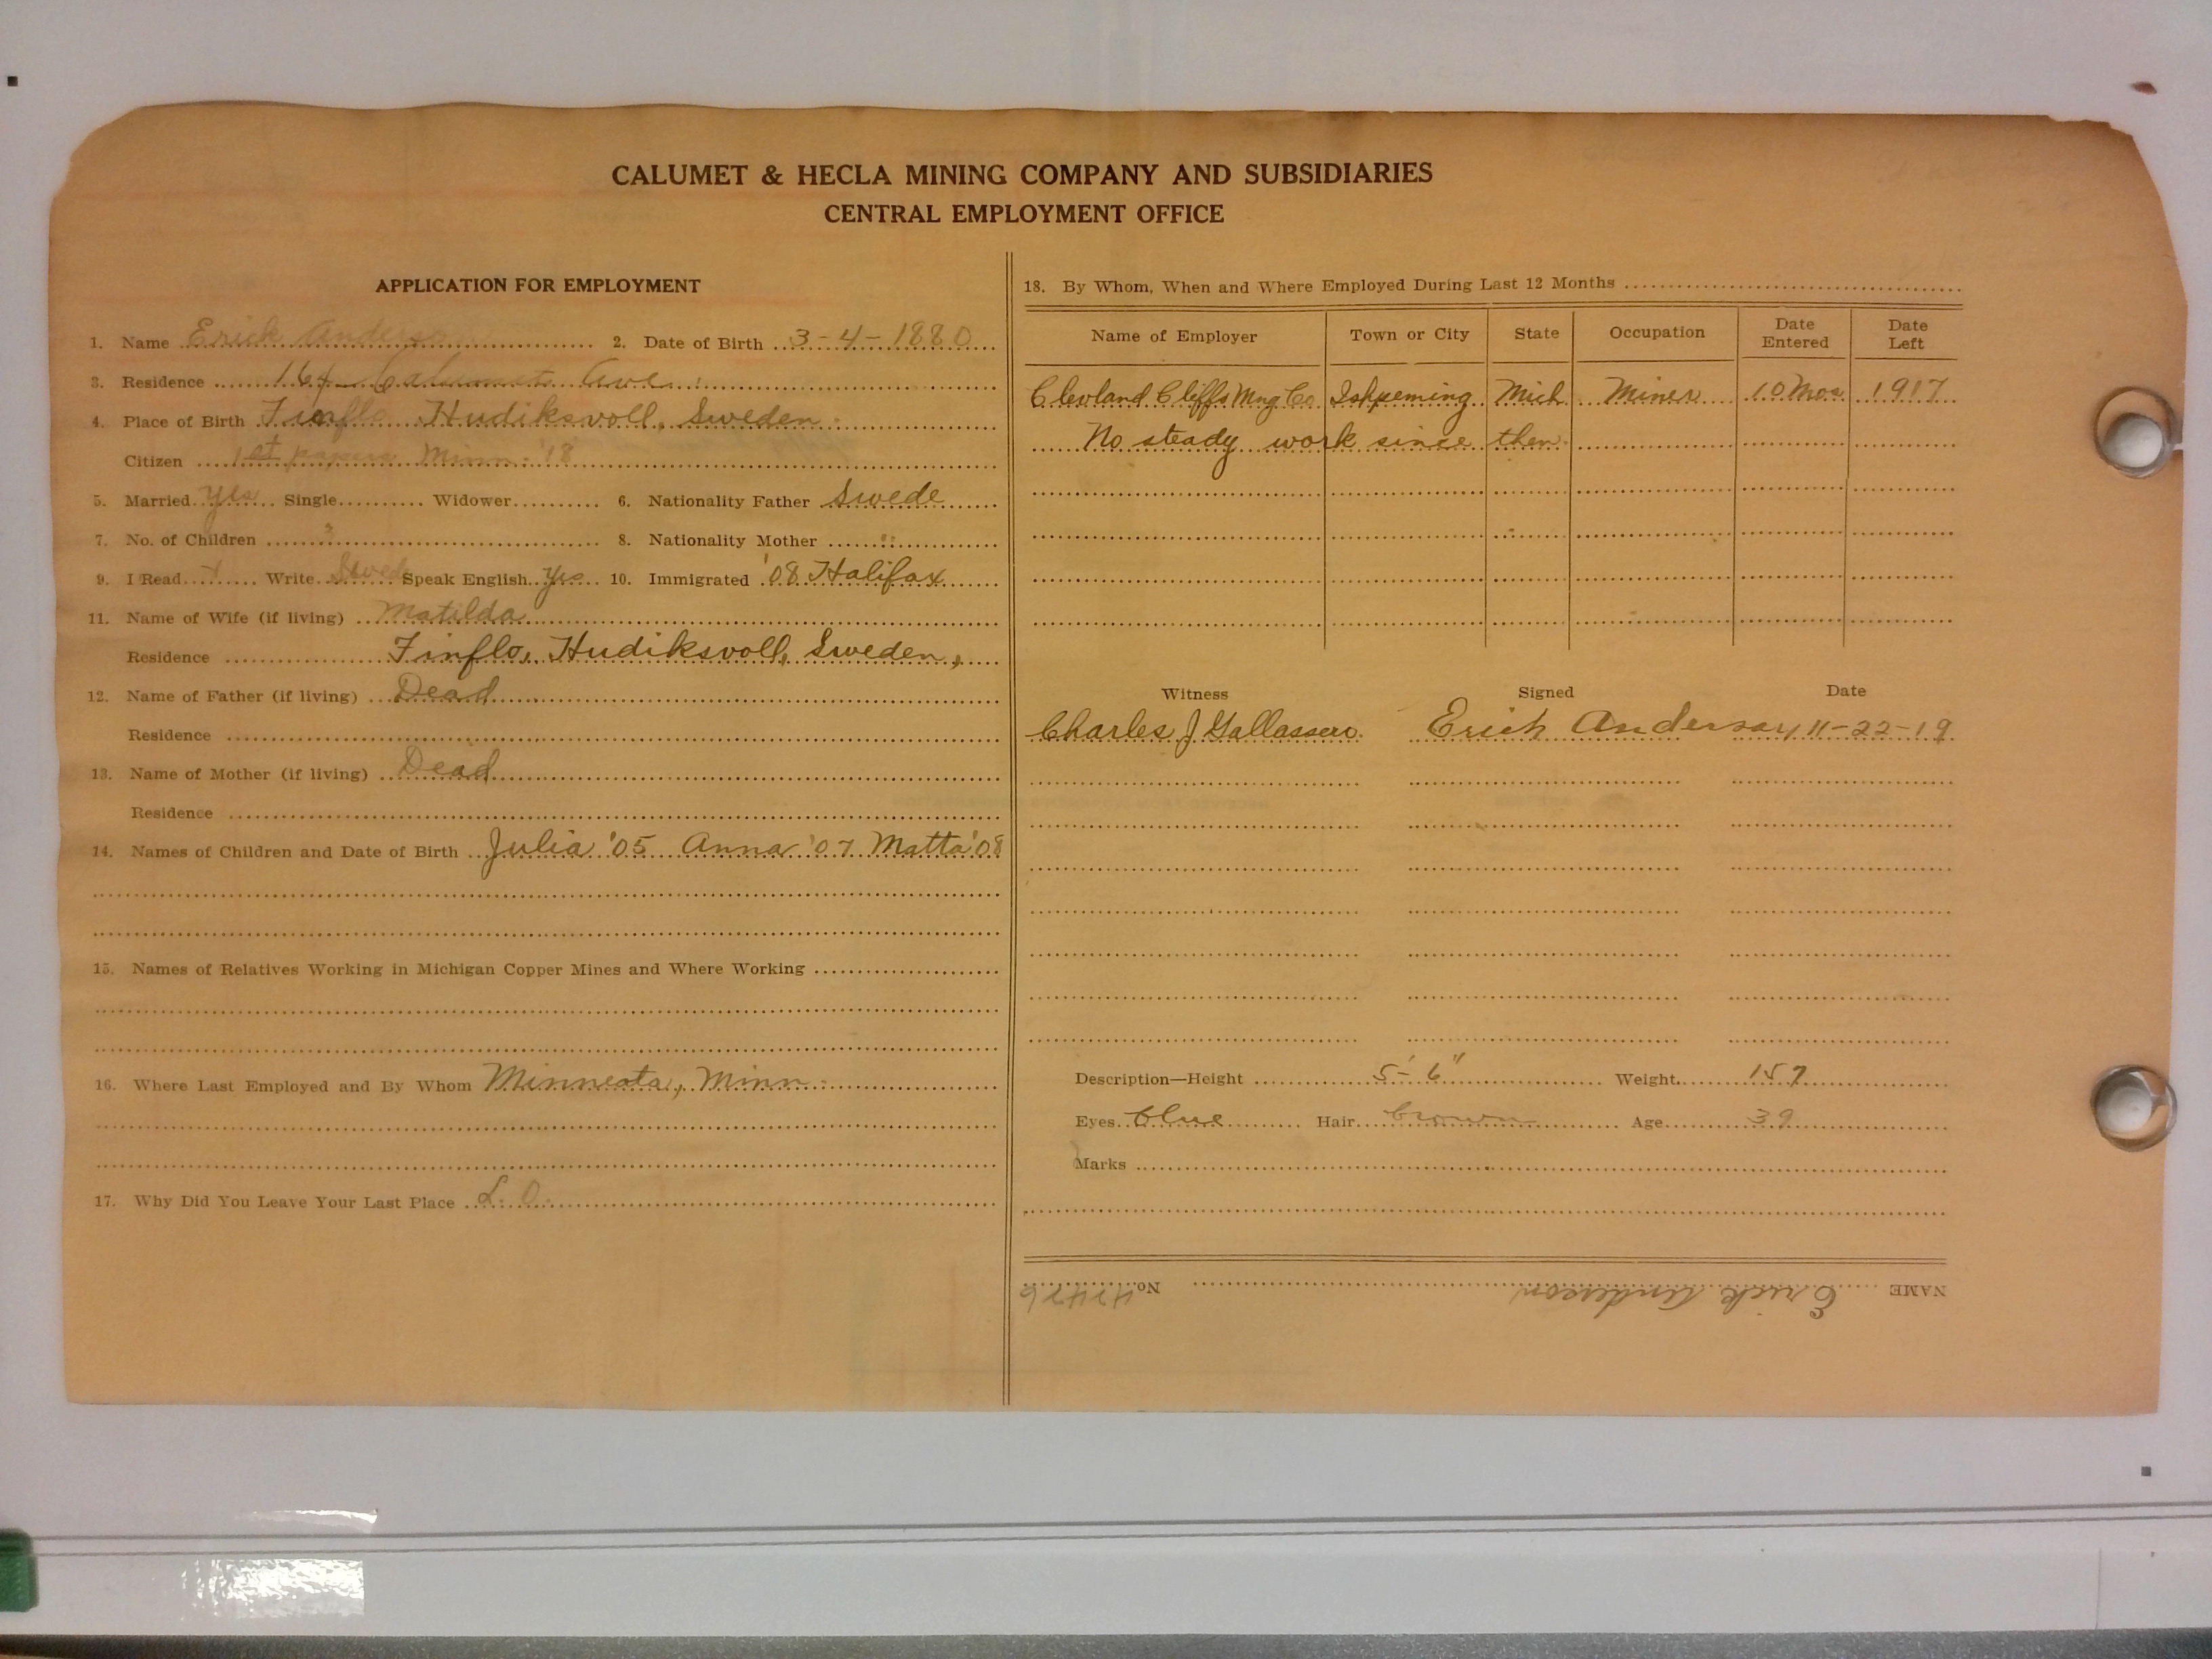 CALUMET & HECLA MINING COMPANY AND SUBSIDIARIES
CENTRAL EMPLOYMENT OFFICE
APPLICATION FOR EMPLOYMENT
1. Name Erick Anderson 2. Date of Birth 3-4-1880
3. Residence 164 Calumet Ave.
4. Place of Birth Finflo Hudiksvoll, Sweden
Citizen 1st papers Minn. '18
5. Married yes Single Widower 6. Nationality Father Swede
7. No. of Children 3 8. Nationality Mother "
9. I Read Write Swede Speak English yes 10. Immigrated '08 Halifax
11. Name of Wife (if living) Matilda
Residence Finflo, Hudiksvoll, Sweden,
12. Name of Father (if living) Dead
Residence
13. Name of Mother (if living) Dead
Residence
14. Names of Children and Date of Birth Julia '05 Anna '07 Matta '08
15. Names of Relatives Working in Michigan Copper Mines and Where Working
16. Where Last Employed and By Whom Minneota, Minn.
17. Why Did You Leave Your Last Place L. O.
18. By Whom, When and Where Employed During Last 12 Months
Name of Employer Town or City State Occupation Date Entered Date Left
Clevland Cliffs Mng Co Ishpeming Mich Miner 10 Mos 1917
No steady work since then.
Witness Signed Date
Charles J Gallassero. Erick Anderson 11-22-19
Description—Height 5'-6" Weight 157
Eyes blue Hair brown Age 39
Marks
NAME Erick Anderson No. 47476